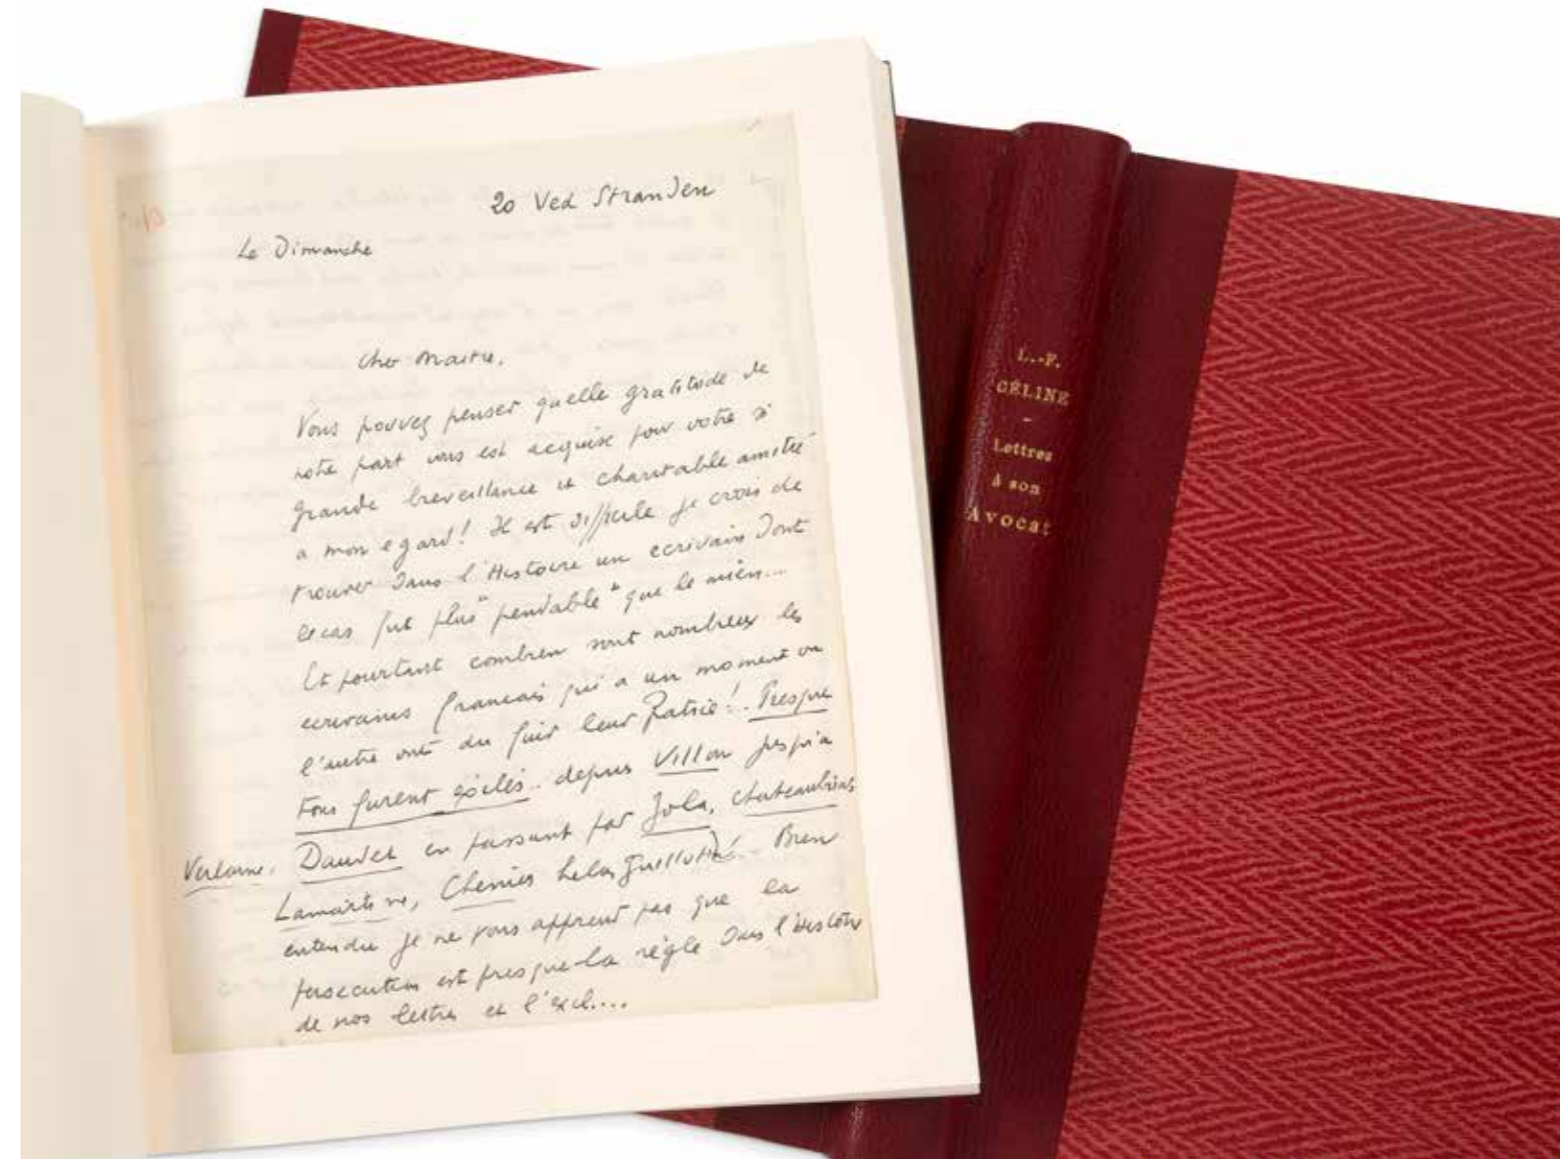 20 Ved Stranden
Le Dimanche
Cher Maitre,
Vous pouvez penser quelle gratitude de
notre part vous est acquise pour votre si
grande bienveillance et charitable amitié
a mon egard! Il est difficile je crois de
trouver dans l'Histoire un ecrivain dont
le cas fut plus "pendable" que le mien...
Et pourtant combien sont nombreux les
ecrivains francais qui a un moment ou
l'autre ont du fuir leur Patrie! Presque
tous furent exilés.. depuis Villon jusqu'a
Verlaine, Daudet en passant par Zola, Chateaubriand,
Lamartine, Chenier helas guillotiné.. Bien
entendu je ne vous apprend pas que la
persecution est presque la règle dans l'Histoire
de nos lettres et l'exil....
L.-F.
CÉLINE
-
Lettres
à son
Avocat